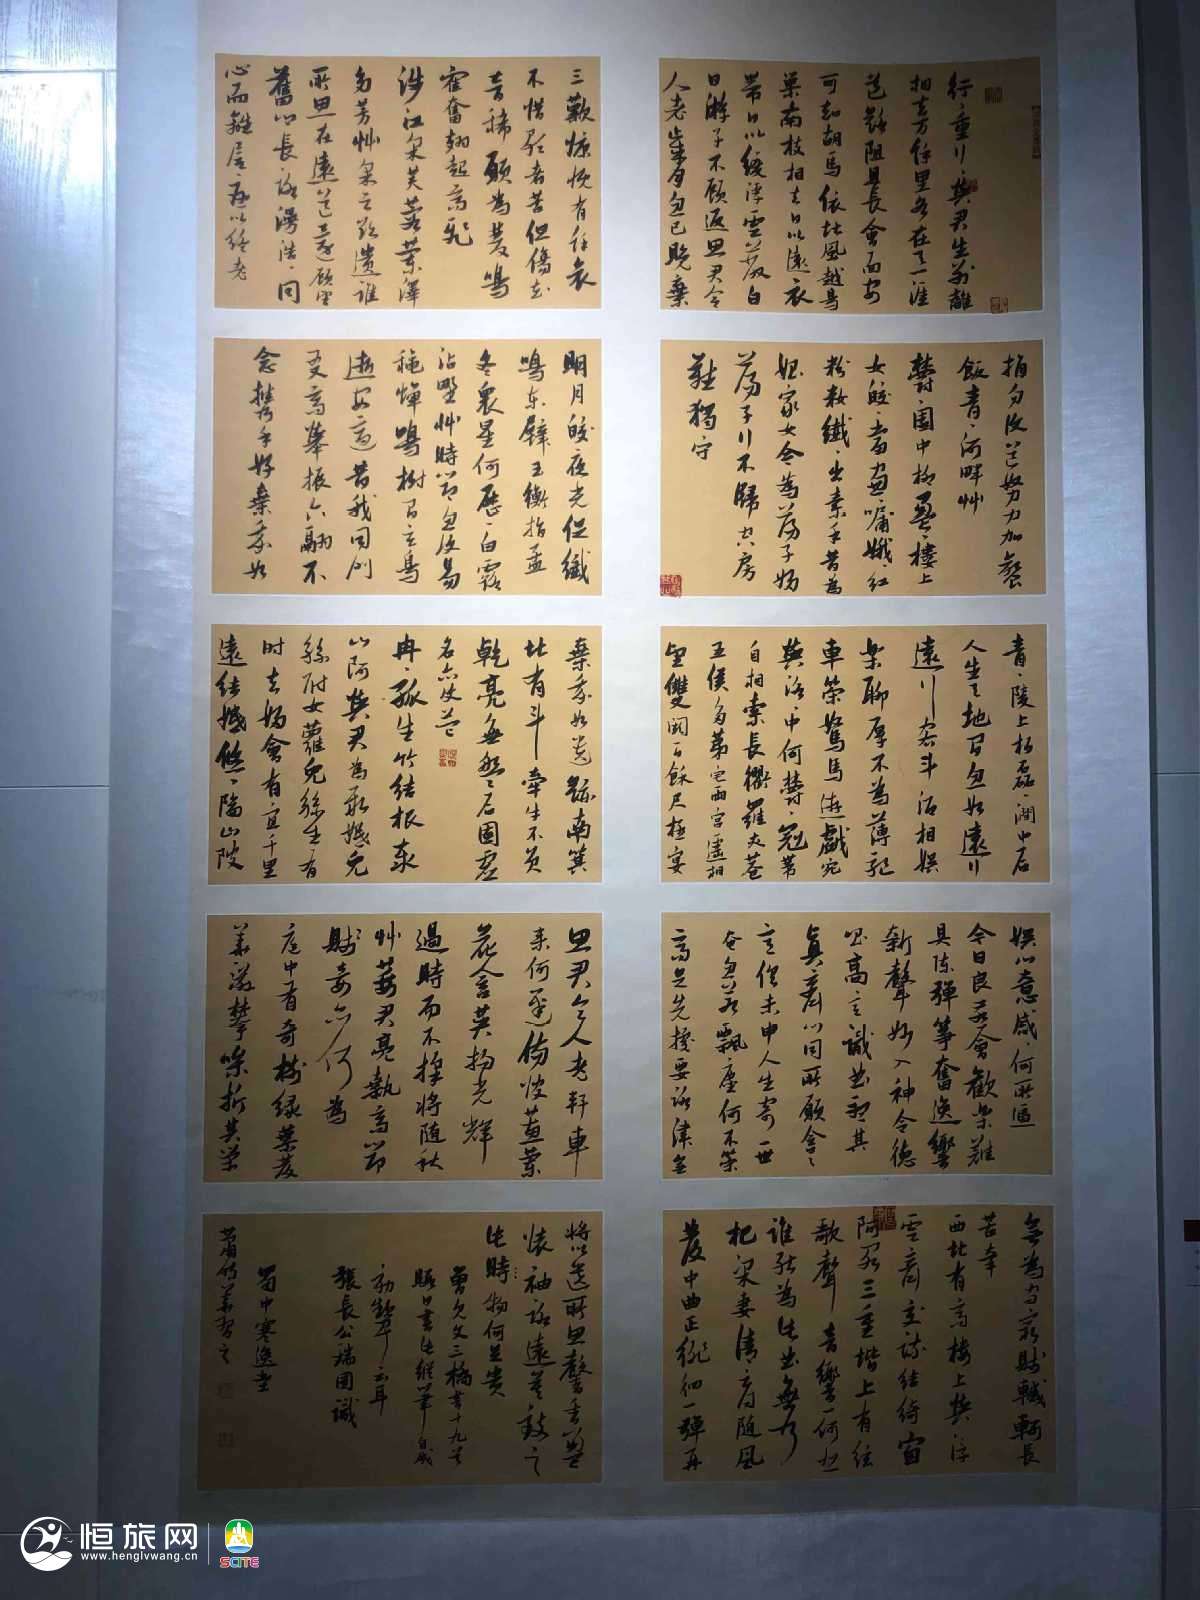 行〻重行〻與君生別離
相去万余里各在天一涯
道路阻且長會面安
可知胡馬依北風越鳥
巢南枝相去日以遠衣
帶日以緩浮雲蔽白
日游子不顧返思君令
人老歲月忽已晚棄
捐勿復道努力加餐
飯青〻河畔艸
鬱〻園中柳盈〻樓上
女皎〻當窗牖娥〻紅
粉妝纖〻出素手昔為
娼家女今為蕩子婦
蕩子行不歸空房
難獨守
青〻陵上柏磊〻澗中石
人生天地間忽如遠行
遠行客斗酒相娛
樂聊厚不為薄驅
車策駑馬遊戲宛
與洛〻中何鬱〻冠帶
自相索長衢羅夾巷
王侯多第宅兩宮遙相
望雙闕百餘尺極宴
娛心意戚〻何所逼
今日良宴會歡樂難
具陳彈箏奮逸響
新聲妙入神令德
唱高言識曲聽其
真齊心同所願含意
俱未申人生寄一世
奄忽若飄塵何不策
高足先據要路津無
無為守窮賤轗軻長
苦辛
西北有高樓上與浮
雲齊交疏結綺窗
阿閣三重階上有絃
歌聲音響一何悲
誰能為此曲無乃
杞梁妻清商隨風
發中曲正徘徊一彈再
三歎慷慨有餘哀
不惜歌者苦但傷知
音稀願為雙鳴
鶴奮翅起高飛
涉江采芙蓉蘭澤
多芳艸采之欲遺誰
所思在遠道還顧望
舊鄉長路漫浩〻同
心而離居憂以終老
明月皎夜光促織
鳴東壁玉衡指孟
冬眾星何歷〻白露
沾野艸時節忽復易
秋蟬鳴樹間玄鳥
逝安適昔我同門
友高舉振六翮不
念攜手好棄我如
棄我如遺跡南箕
北有斗牽牛不負
軛良無盤石固虛
名亦復益
冉〻孤生竹結根泰
山阿與君為新婚兔
絲附女蘿兔絲生有
時夫婦會有宜千里
遠結婚悠〻隔山陂
思君令人老軒車
來何遲傷彼蕙蘭
花含英揚光輝
過時而不採將隨秋
艸萎君亮執高節
賤妾亦何為
庭中有奇樹綠葉發
華滋攀條折其榮
將以遺所思馨香盈
懷袖路遠莫致之
此時物何足貴
張長公瑞圖識
蜀中寒逸堂
恒旅网
www.henglvwang.cn
SCITE